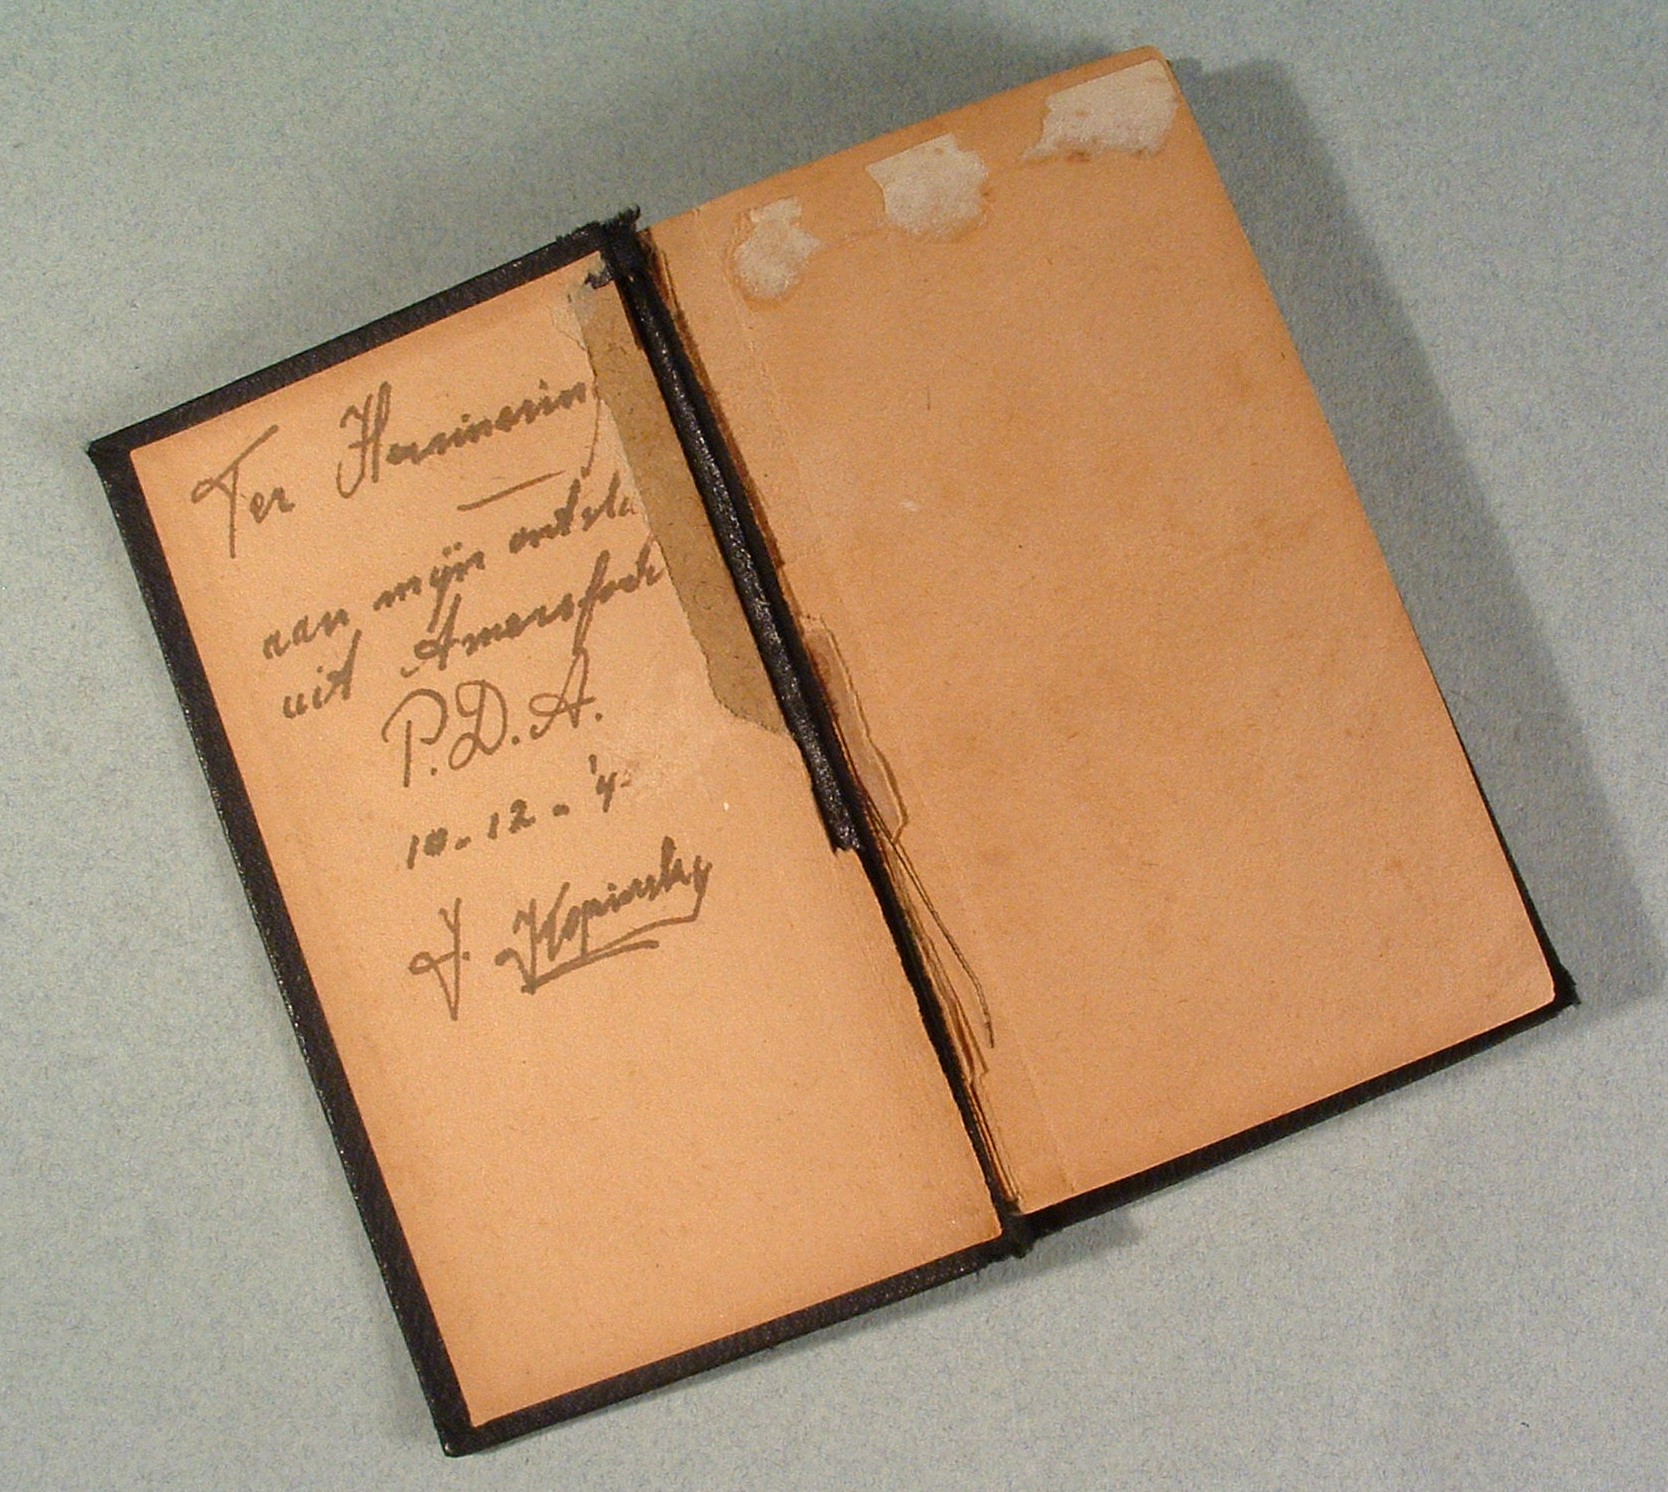 Ter Herinnering
aan mijn ontsla
uit Amersfoort
P.D.A.
10-12-'4
J. Kopinsky